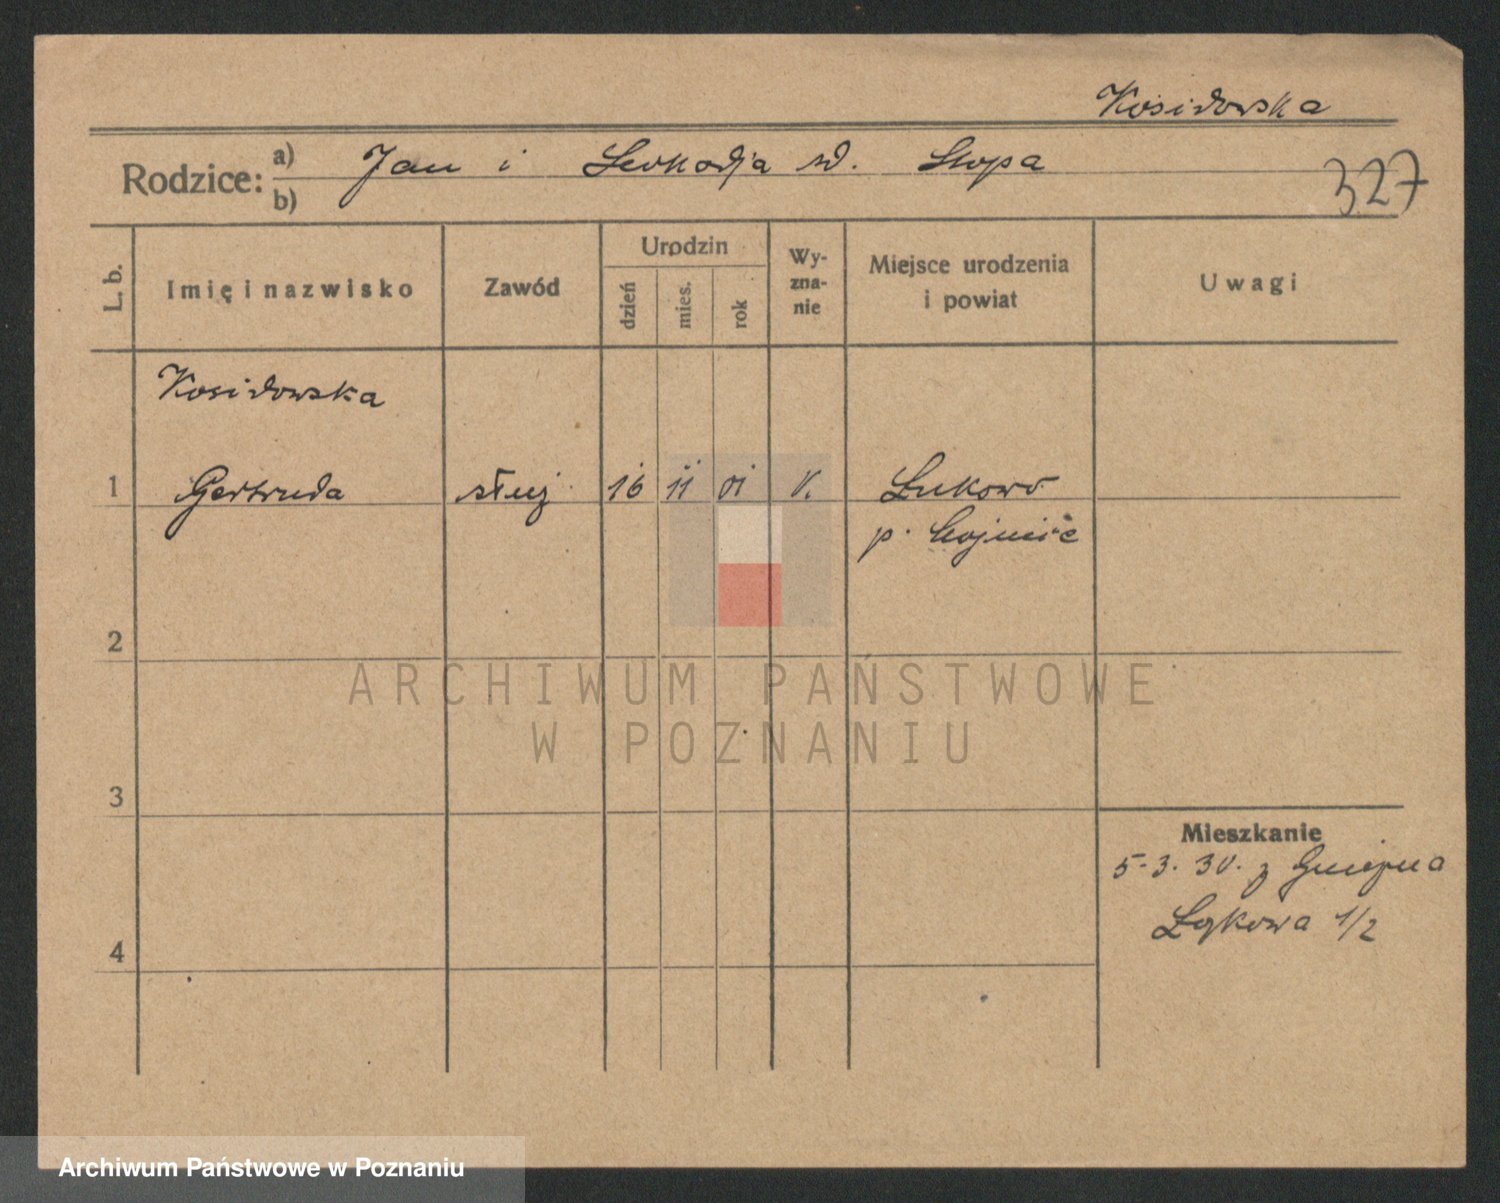 Kosidowska
Rodzice: a) Jan i Leokadja zd. Stopa
b)
327
L. b. Imię i nazwisko Zawód Urodzin dzień mies. rok Wyznanie Miejsce urodzenia i powiat Uwagi
Kosidowska
1 Gertruda służ. 16 11 01 k. Łukowo
p.
2
3
Mieszkanie
5.3.30. z Gniezna
Łąkowa 1/2
4
ARCHIWUM PAŃSTWOWE
W POZNANIU
Archiwum Państwowe w Poznaniu